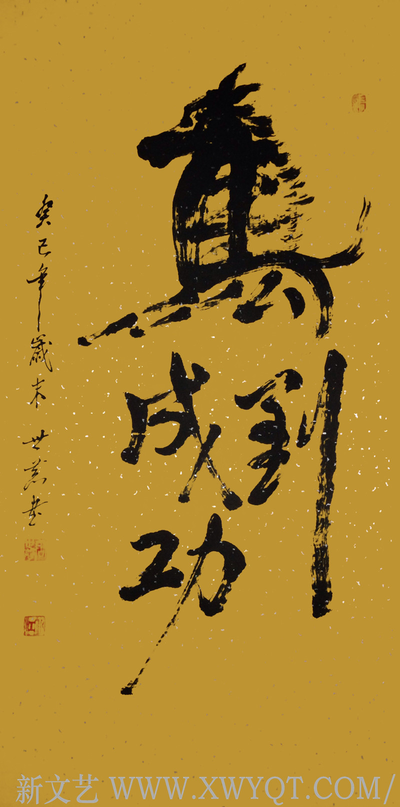 馬到
成功
癸巳年歲末 世书
新文艺 WWW.XWYQT.COM/